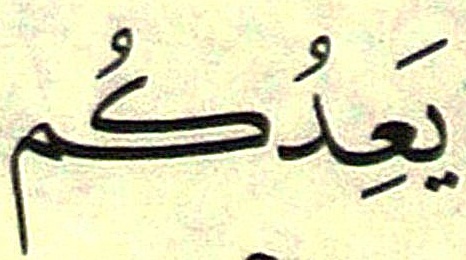 يَعِدُكُم